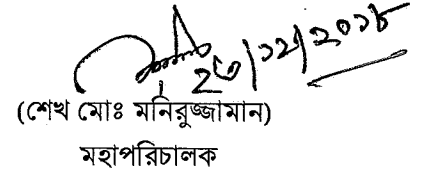 ২৩/১২/২০১৮
(শেখ মোঃ মনিরুজ্জামান)
মহাপরিচালক